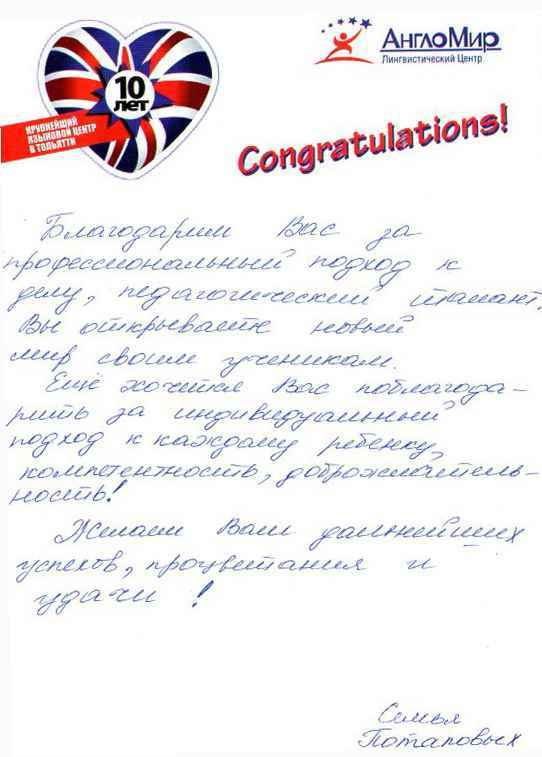 10
ЛЕТ
КРУПНЕЙШИЙ
ЯЗЫКОВОЙ ЦЕНТР
В ТОЛЬЯТТИ
АнглоМир
Лингвистический Центр
Congratulations!
Благодарим Вас за
профессиональный подход к
делу, педагогический талант.
Вы открываете новый
мир своим ученикам.
Ещё хочется Вас поблагода-
рить за индивидуальный
подход к каждому ребенку,
компетентность, доброжелатель-
ность!
Желаем Вам дальнейших
успехов, процветания и
удачи!
Семья
Потаповых